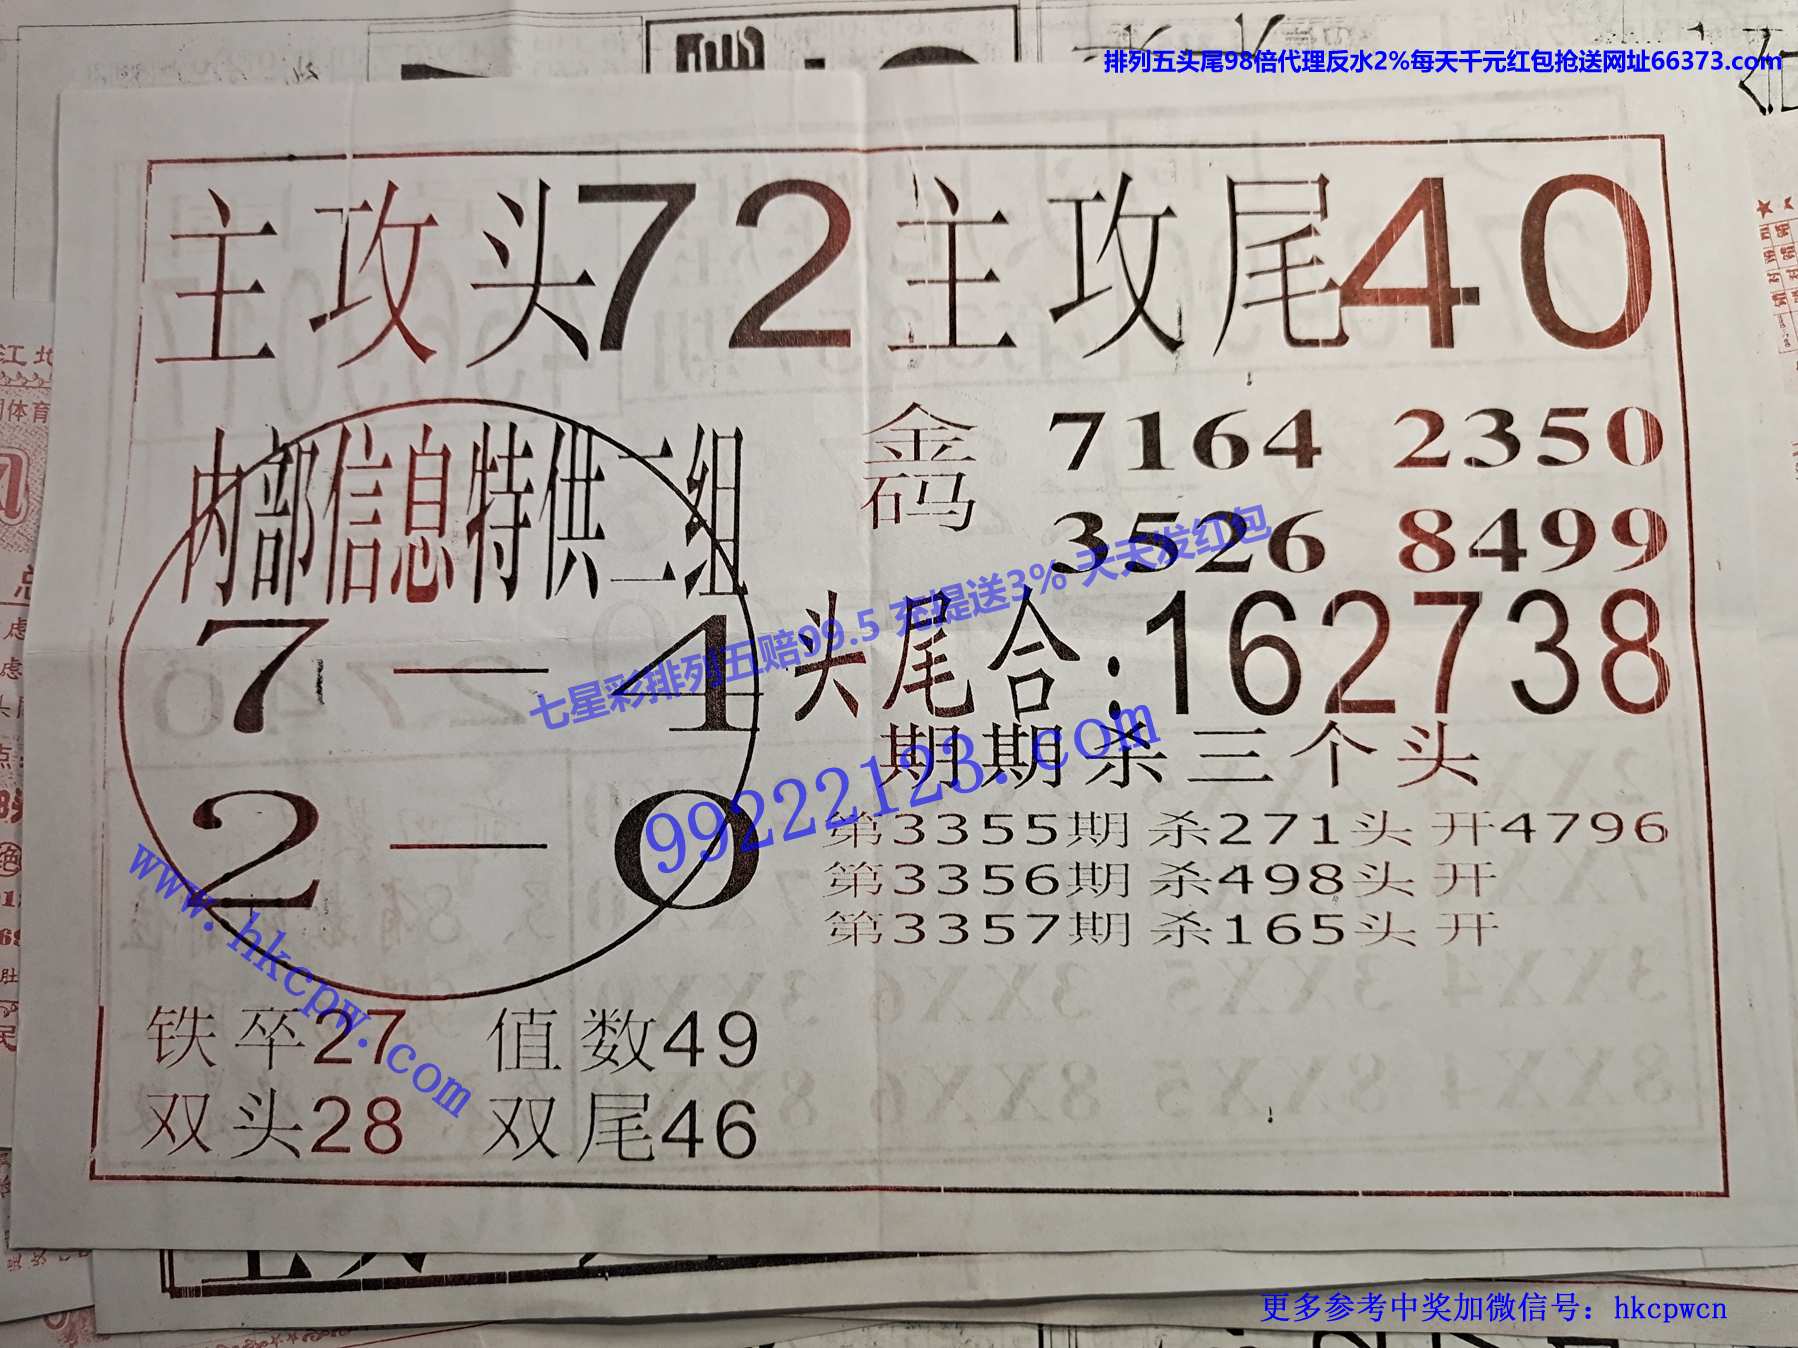 排列五头尾98倍代理反水2%每天千元红包抢送网址66373.com
主攻头72 主攻尾40
内部信息特供二组
7—4
2—0
金码 7164 2350
3526 8499
七星彩排列五赔99.5 充提送3% 天天发红包
99222123.com
头尾合:162738
期期杀三个头
第3355期 杀271头 开4796
第3356期 杀498头 开
第3357期 杀165头 开
www.hkcpw.com
铁卒27 值数49
双头28 双尾46
更多参考中奖加微信号：hkcpwcn